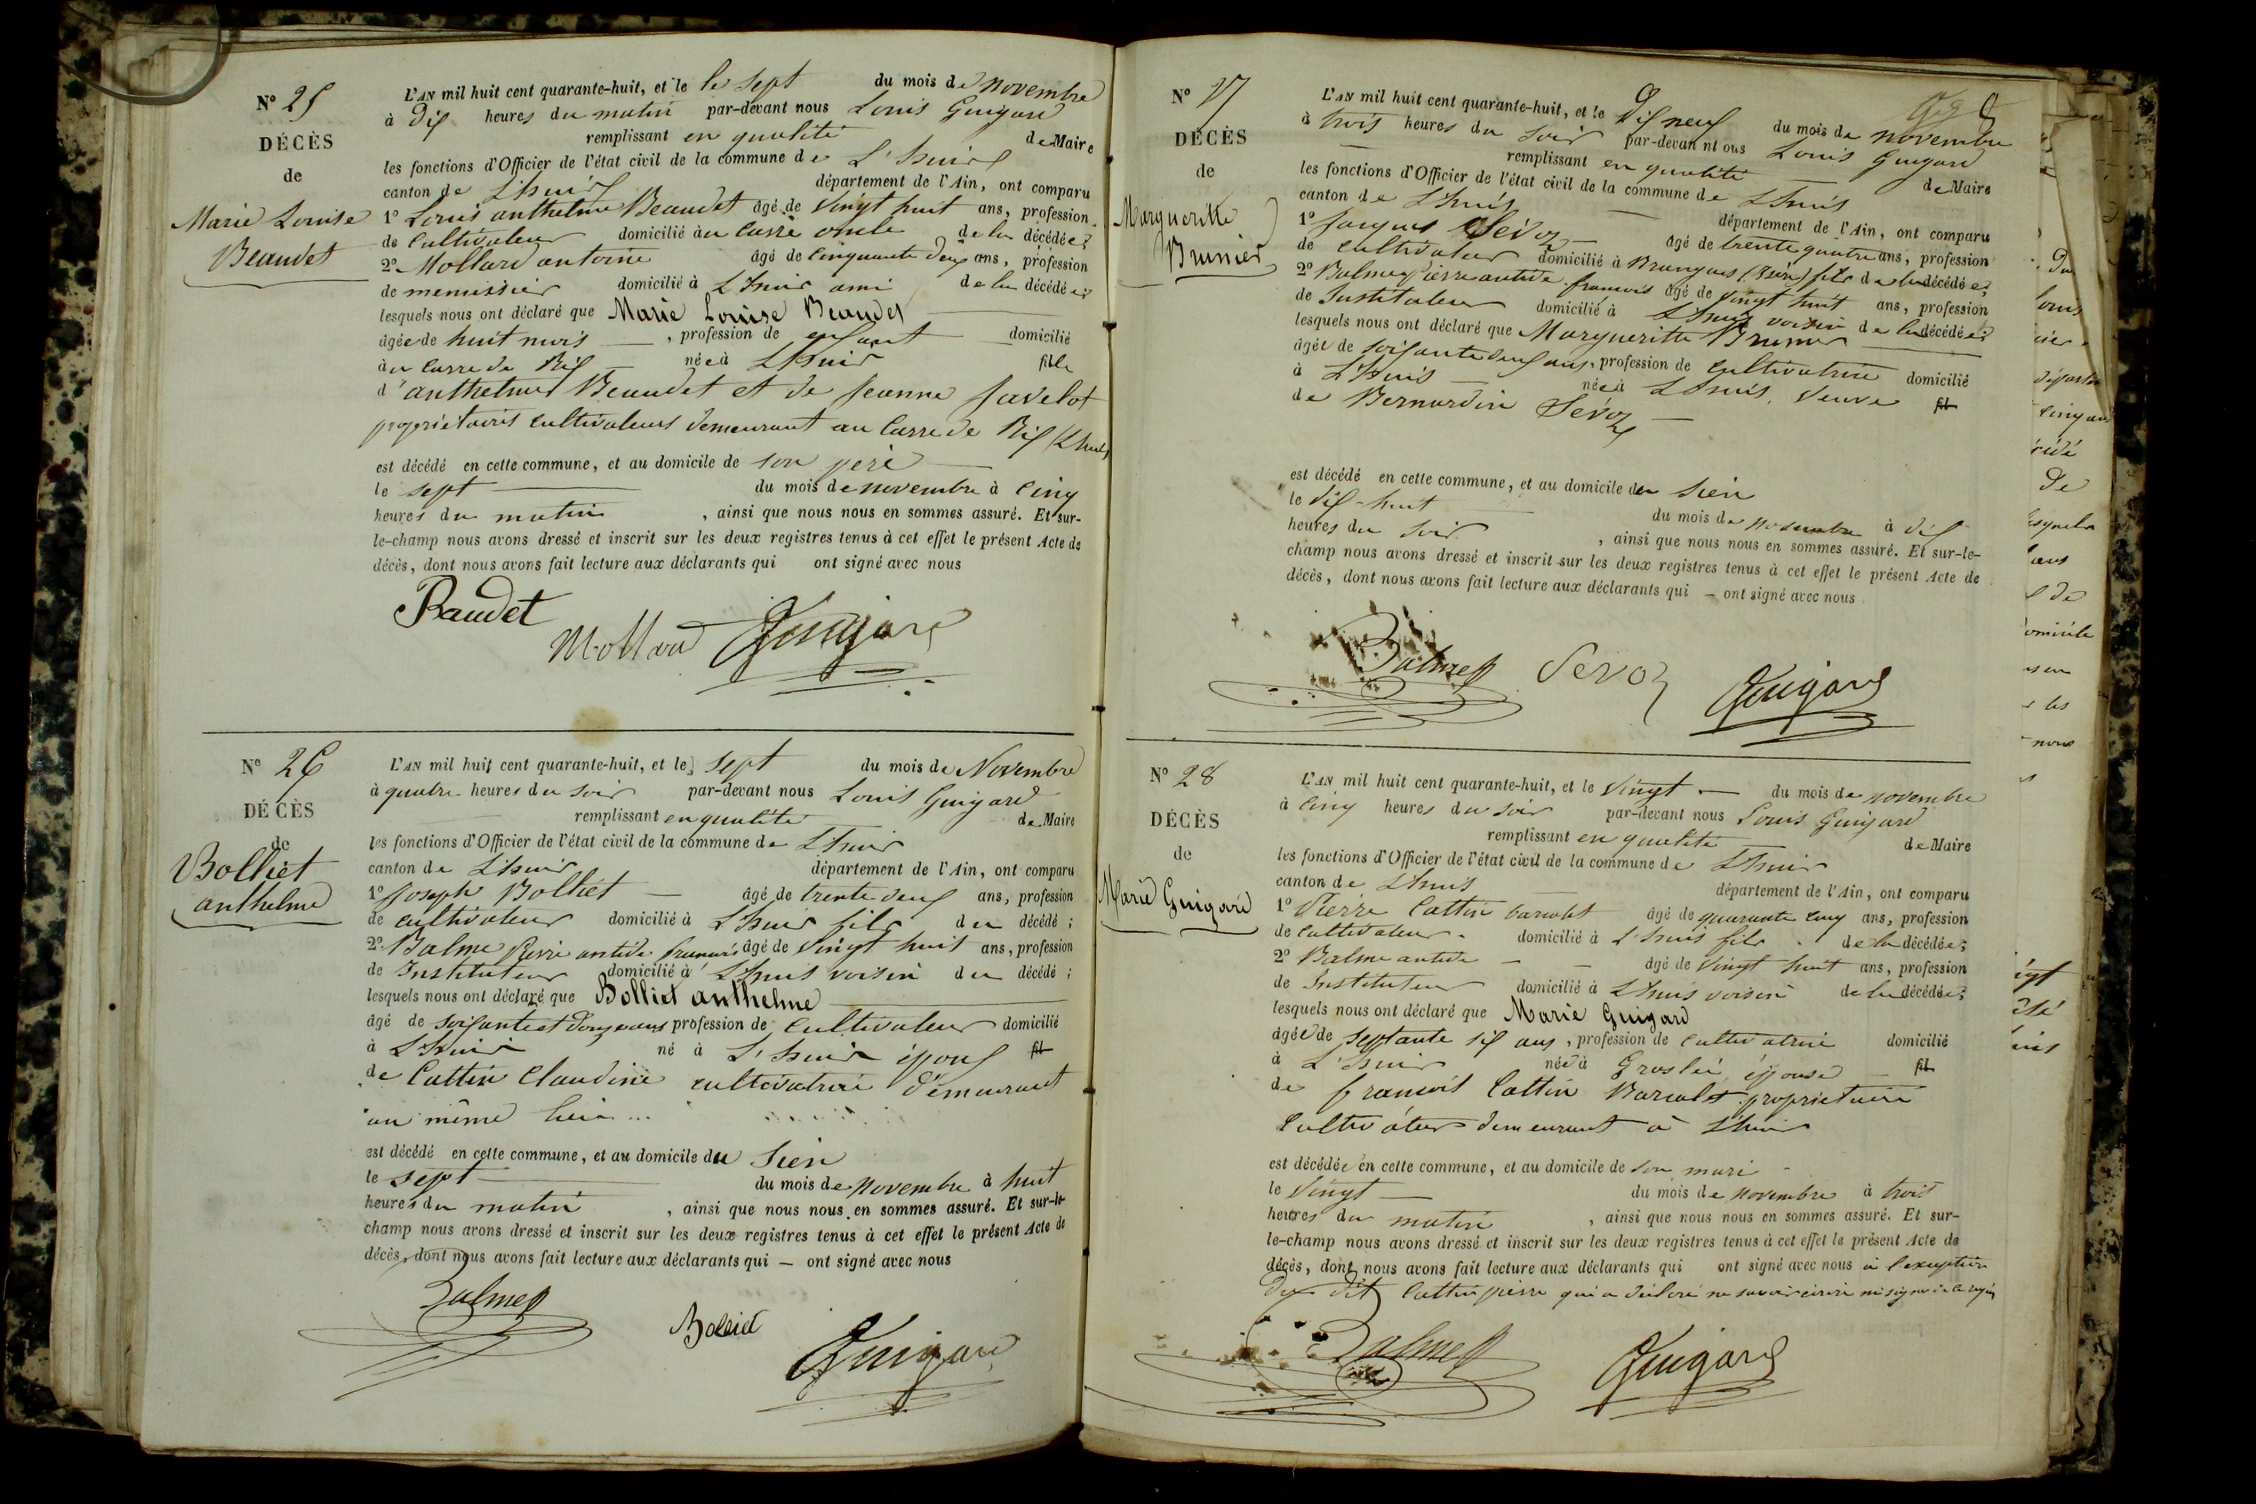 N° 25
DÉCÈS
de
Marie Louise
Beaudet
L'AN mil huit cent quarante-huit, et le le sept du mois de novembre
à dix heures du matin par-devant nous Louis Guigard
remplissant en qualité de Maire
les fonctions d'Officier de l'état civil de la commune de L'huis
canton de L'huis département de l'Ain, ont comparu
1° Louis anthelme Beaudet âgé de vingt huit ans, profession
de cultivateur domicilié au carre oncle de la décédée;
2° Mollard antoine âgé de cinquante deux ans, profession
de menuisier domicilié à L'huis ami de la décédée;
lesquels nous ont déclaré que Marie Louise Beaudet
âgée de huit mois, profession de enfant domicilié
au carre de Rix née à L'huis fille
d'anthelme Beaudet et de jeanne javelot
propriétaires cultivateurs demeurant au carre de Rix (L'huis)
est décédé en cette commune, et au domicile de son père
le sept du mois de novembre à cinq
heures du matin, ainsi que nous nous en sommes assuré. Et sur-
le-champ nous avons dressé et inscrit sur les deux registres tenus à cet effet le présent Acte de
décès, dont nous avons fait lecture aux déclarants qui ont signé avec nous
Baudet
Mollard Guigard
N° 26
DÉCÈS
de
Bolliet
anthelme
L'AN mil huit cent quarante-huit, et le sept du mois de Novembre
à quatre heures du soir par-devant nous Louis Guigard
remplissant en qualité de Maire
les fonctions d'Officier de l'état civil de la commune de L'huis
canton de L'huis département de l'Ain, ont comparu
1° joseph Bolliet âgé de trente deux ans, profession
de cultivateur domicilié à L'huis fils du décédé;
2° Balme Pierre antide francois âgé de vingt huit ans, profession
de Instituteur domicilié à L'huis voisin du décédé;
lesquels nous ont déclaré que Bolliet anthelme
âgé de soixante et douze ans profession de cultivateur domicilié
à L'huis né à L'huis époux fil
de Cattin Claudine cultivatrice demeurant
au même lieu
est décédé en cette commune, et au domicile du sien
le sept du mois de novembre à huit
heures du matin, ainsi que nous nous en sommes assuré. Et sur-le-
champ nous avons dressé et inscrit sur les deux registres tenus à cet effet le présent Acte de
décès, dont nous avons fait lecture aux déclarants qui — ont signé avec nous
Balme
Bolliet
Guigard
N° 27
DÉCÈS
de
Margueritte
Brunier
L'AN mil huit cent quarante-huit, et le dix neuf du mois de novembre
à trois heures du soir par-devan nt ous Louis Guigard
remplissant en qualité de Maire
les fonctions d'Officier de l'état civil de la commune de L'huis
canton de L'huis département de l'Ain, ont comparu
1° jacques Sévoz âgé de trente quatre ans, profession
de cultivateur domicilié à Brangues (Isère) fils de la décédée;
2° Balme Pierre antide francois âgé de vingt huit ans, profession
de Instituteur domicilié à L'huis voisin de la décédée;
lesquels nous ont déclaré que Margueritte Brunier
âgée de soixante deux ans, profession de cultivatrice domicilié
à L'huis née à L'huis, veuve fil
de Bernardin Sévoz
est décédé en cette commune, et au domicile du sien
le dix-huit du mois de novembre à dix
heures du soir, ainsi que nous nous en sommes assuré. Et sur-le-
champ nous avons dressé et inscrit sur les deux registres tenus à cet effet le présent Acte de
décès, dont nous avons fait lecture aux déclarants qui — ont signé avec nous
Balme Sevoz Guigard
N° 28
DÉCÈS
de
Marie Guigard
L'AN mil huit cent quarante-huit, et le vingt du mois de novembre
à cinq heures du soir par-devant nous Louis Guigard
remplissant en qualité de Maire
les fonctions d'Officier de l'état civil de la commune de L'huis
canton de L'huis département de l'Ain, ont comparu
1° Pierre Cattin barolet âgé de quarante cinq ans, profession
de cultivateur domicilié à L'huis fils de la décédée;
2° Balme antide âgé de vingt huit ans, profession
de Instituteur domicilié à L'huis voisin de la décédée;
lesquels nous ont déclaré que Marie Guigard
âgée de septante six ans, profession de cultivatrice domicilié
à L'huis née à Groslée épouse fil
de francois Cattin Barolet propriétaire
Cultivateur demeurant à L'huis
est décédée en cette commune, et au domicile de son mari
le vingt du mois de novembre à trois
heures du matin, ainsi que nous nous en sommes assuré. Et sur-
le-champ nous avons dressé et inscrit sur les deux registres tenus à cet effet le présent Acte de
décès, dont nous avons fait lecture aux déclarants qui ont signé avec nous à l'exception
du dit Cattin pierre qui a déclaré ne savoir écrire ni signer
Balme Guigard